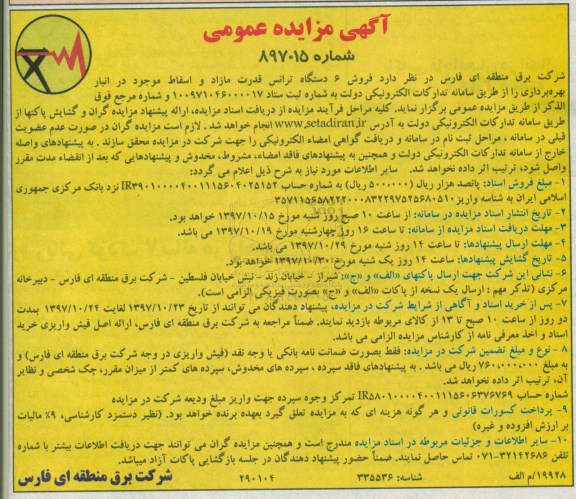 آگهی مزایده عمومی
شماره ۸۹۷۰۱۵
شرکت برق منطقه ای فارس در نظر دارد فروش ۶ دستگاه ترانس قدرت مازاد و اسقاط موجود در انبار
بهره‌برداری را از طریق سامانه تدارکات الکترونیکی دولت به شماره ثبت ستاد ۱۰۰۹۷۱۰۴۶۰۰۰۰۱۷ و شماره مرجع فوق
الذکر از طریق مزایده عمومی برگزار نماید. کلیه مراحل فرآیند مزایده از دریافت اسناد مزایده، ارائه پیشنهاد مزایده گران و گشایش پاکتها از
طریق سامانه تدارکات الکترونیکی دولت به آدرس www.setadiran.ir انجام خواهد شد . لازم است مزایده گران در صورت عدم عضویت
قبلی در سامانه ، مراحل ثبت نام در سامانه و دریافت گواهی امضاء الکترونیکی را جهت شرکت در مزایده محقق سازند . به پیشنهادهای واصله
خارج از سامانه تدارکات الکترونیکی دولت و همچنین به پیشنهادهای فاقد امضاء، مشروط، مخدوش و پیشنهادهایی که بعد از انقضاء مدت مقرر
واصل شود، ترتیب اثر داده نخواهد شد. سایر اطلاعات مورد نیاز به شرح ذیل اعلام می گردد:
۱- مبلغ فروش اسناد: پانصد هزار ریال (۵۰۰۰۰۰ ریال) به شماره حساب نزد بانک مرکزی جمهوری
اسلامی ایران به شناسه واریز
۲- تاریخ انتشار اسناد مزایده در سامانه: از ساعت ۱۰ صبح روز شنبه مورخ ۱۳۹۷/۱۰/۱۵ خواهد بود.
۳- مهلت دریافت اسناد مزایده از سامانه: تا ساعت ۱۶ روز چهارشنبه مورخ ۱۳۹۷/۱۰/۱۹ می باشد.
۴- مهلت ارسال پیشنهادها: تا ساعت ۱۴ روز شنبه مورخ ۱۳۹۷/۱۰/۲۹ می باشد.
۵- تاریخ گشایش پیشنهادها: ساعت ۱۴ روز یک شنبه مورخ ۱۳۹۷/۱۰/۳۰ خواهد بود.
۶- نشانی این شرکت جهت ارسال پاکتهای «الف» و «ج»: شیراز - خیابان زند - نبش خیابان فلسطین - شرکت برق منطقه ای فارس - دبیرخانه
مرکزی (تذکر مهم : ارسال یک نسخه از پاکات «الف» و «ج» بصورت فیزیکی الزامی است).
۷- پس از خرید اسناد و آگاهی از شرایط شرکت در مزایده، پیشنهاد دهندگان می توانند از تاریخ ۱۳۹۷/۱۰/۲۳ لغایت ۱۳۹۷/۱۰/۲۴ بمدت
دو روز از ساعت ۱۰ صبح تا ۱۳ از کالای مربوطه بازدید نمایند. ضمناً مراجعه به شرکت برق منطقه ای فارس، ارائه اصل فیش واریزی خرید
اسناد و اخذ معرفی نامه از کارشناس مزایده الزامی می باشد.
۸ - نوع و مبلغ تضمین شرکت در مزایده: فقط بصورت ضمانت نامه بانکی یا وجه نقد (فیش واریزی در وجه شرکت برق منطقه ای فارس) و
به مبلغ ۷۶۰,۰۰۰,۰۰۰ ریال می باشد . به پیشنهادهای فاقد سپرده ، سپرده های مخدوش، سپرده های کمتر از میزان مقرر، چک شخصی و نظایر
آن، ترتیب اثر داده نخواهد شد.
شماره حساب تمرکز وجوه سپرده جهت واریز مبلغ ودیعه شرکت در مزایده
۹- پرداخت کسورات قانونی و هر گونه هزینه ای که به مزایده تعلق گیرد بعهده برنده خواهد بود. (نظیر دستمزد کارشناسی، ۹٪ مالیات
بر ارزش افزوده و غیره)
۱۰- سایر اطلاعات و جزئیات مربوطه در اسناد مزایده مندرج است و همچنین مزایده گران می توانند جهت دریافت اطلاعات بیشتر با شماره
تلفن ۳۲۱۴۲۶۸۶-۰۷۱ تماس حاصل نمایند. ضمناً حضور پیشنهاد دهندگان در جلسه بازگشایی پاکات آزاد میباشد.
۱۹۲۸/م الف شناسه: ۳۳۵۵۳۶ ۲۹۰۱۰۴ شرکت برق منطقه ای فارس